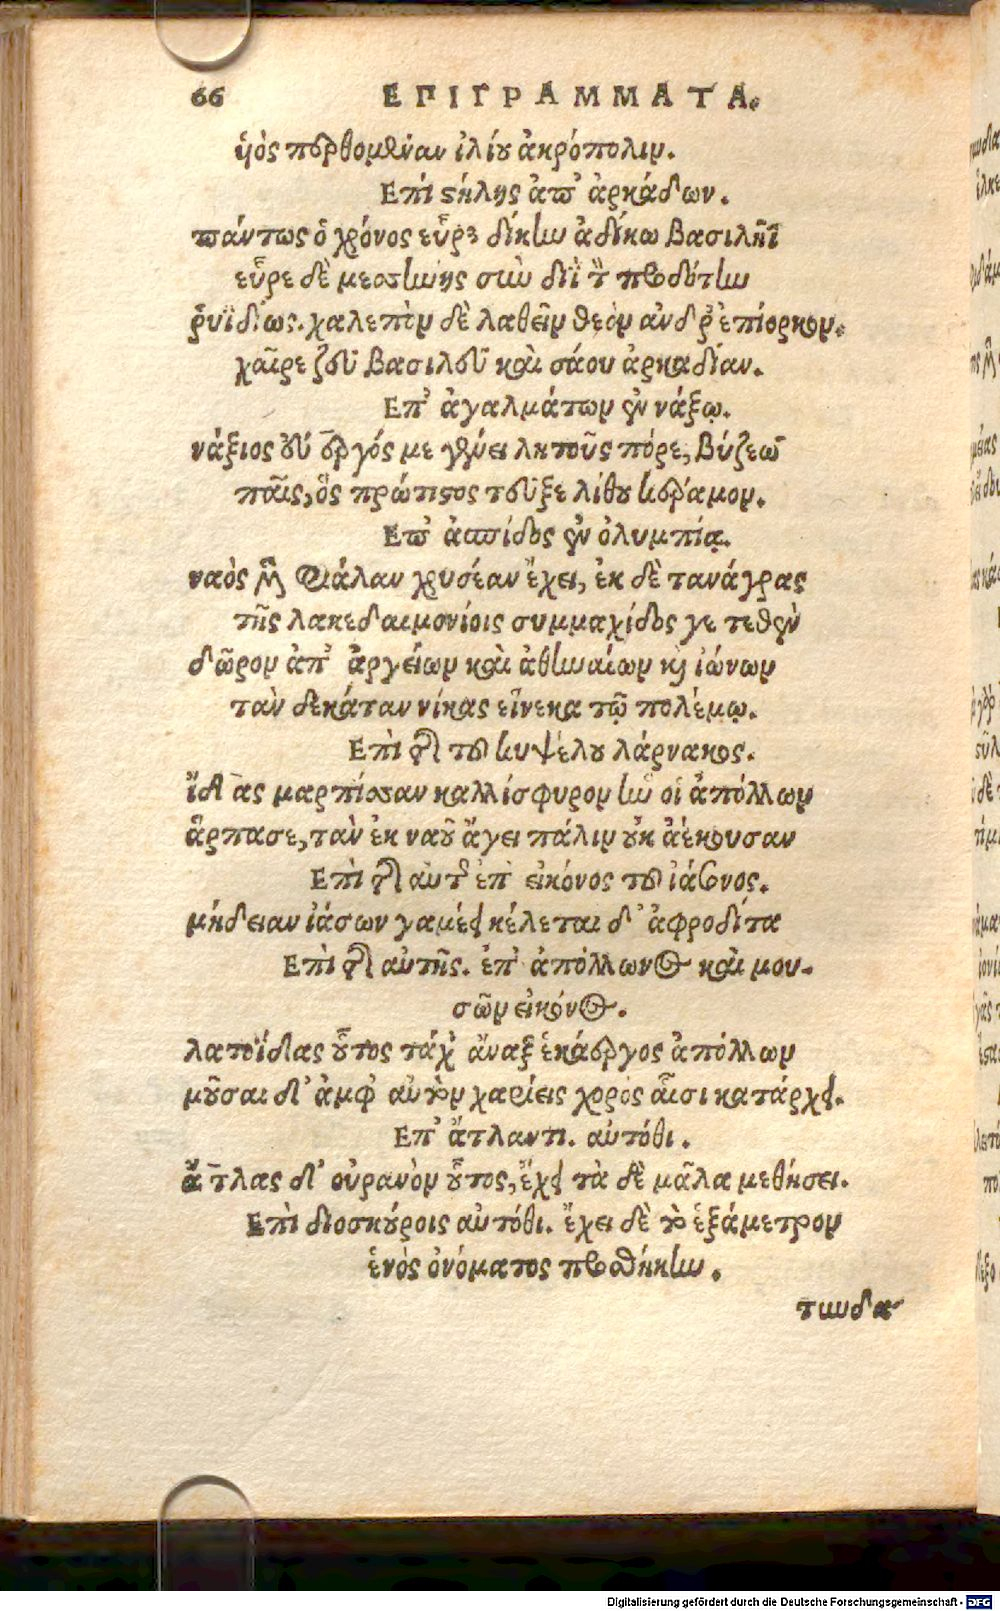 66 ΕΠΙΓΡΑΜΜΑΤΑ.
υἱὸς περθομέναν ἰλίου ἀκρόπολιν.
Επὶ στήλης ἀπ' ἀρκάδων.
πάντως ὁ χρόνος εὗρε δίκην ἀδίκω βασιλῆϊ
εὗρε δὲ μεσσήνης σὺν διῒ τὸν προδότην
ῥηϊδίως. χαλεπὸν δὲ λαθεῖν θεὸν ἄνδρ' ἐπίορκον.
χαῖρε ζεῦ βασιλεῦ καὶ σάου ἀρκαδίαν.
Επ' ἀγαλμάτων ἐν νάξῳ.
νάξιος εὔεργός με γένει λητοῦς πόρε, βύζεω
παῖς, ὃς πρώτιστος τεῦξε λίθου κέραμον.
Επ' ἀσπίδος ἐν ὀλυμπίᾳ.
ναὸς μὲν φιάλαν χρυσέαν ἔχει, ἐκ δὲ τανάγρας
τῆς λακεδαιμονίοις συμμαχίδος γε τεθὲν
δῶρον ἀπ' ἀργείων καὶ ἀθηναίων καὶ ἰώνων
τὰν δεκάταν νίκας εἵνεκα τῶ πολέμω.
Επὶ τῆς τοῦ κυψέλου λάρνακος.
ἴδας μαρπίσσαν καλλίσφυρον ἥν οἱ ἀπόλλων
ἅρπασε, τὰν ἐκ ναοῦ ἄγει πάλιν οὐκ ἀέκουσαν
Επὶ τῆς αὐτῆς ἐπ' εἰκόνος τοῦ ἰάσονος.
μήδειαν ἰάσων γαμέει κέλεται δ' ἀφροδίτα
Επὶ τῆς αὐτῆς. ἐπ' ἀπόλλωνος καὶ μου-
σῶν εἰκόνος.
λατοΐδας οὗτος τάχ' ἄναξ ἑκάεργος ἀπόλλων
μοῦσαι δ' ἀμφ' αὐτὸν χαρίεις χορὸς αἷσι κατάρχει.
Επ' ἄτλαντι. αὐτόθι.
ἄτλας δ' οὐρανὸν οὗτος, ἔχει τὰ δὲ μᾶλα μεθήσει.
Επὶ διοσκούροις αὐτόθι. ἔχει δὲ τὸ ἑξάμετρον
ἑνὸς ὀνόματος προσθήκην.
τυνδα
Digitalisierung gefördert durch die Deutsche Forschungsgemeinschaft - DFG